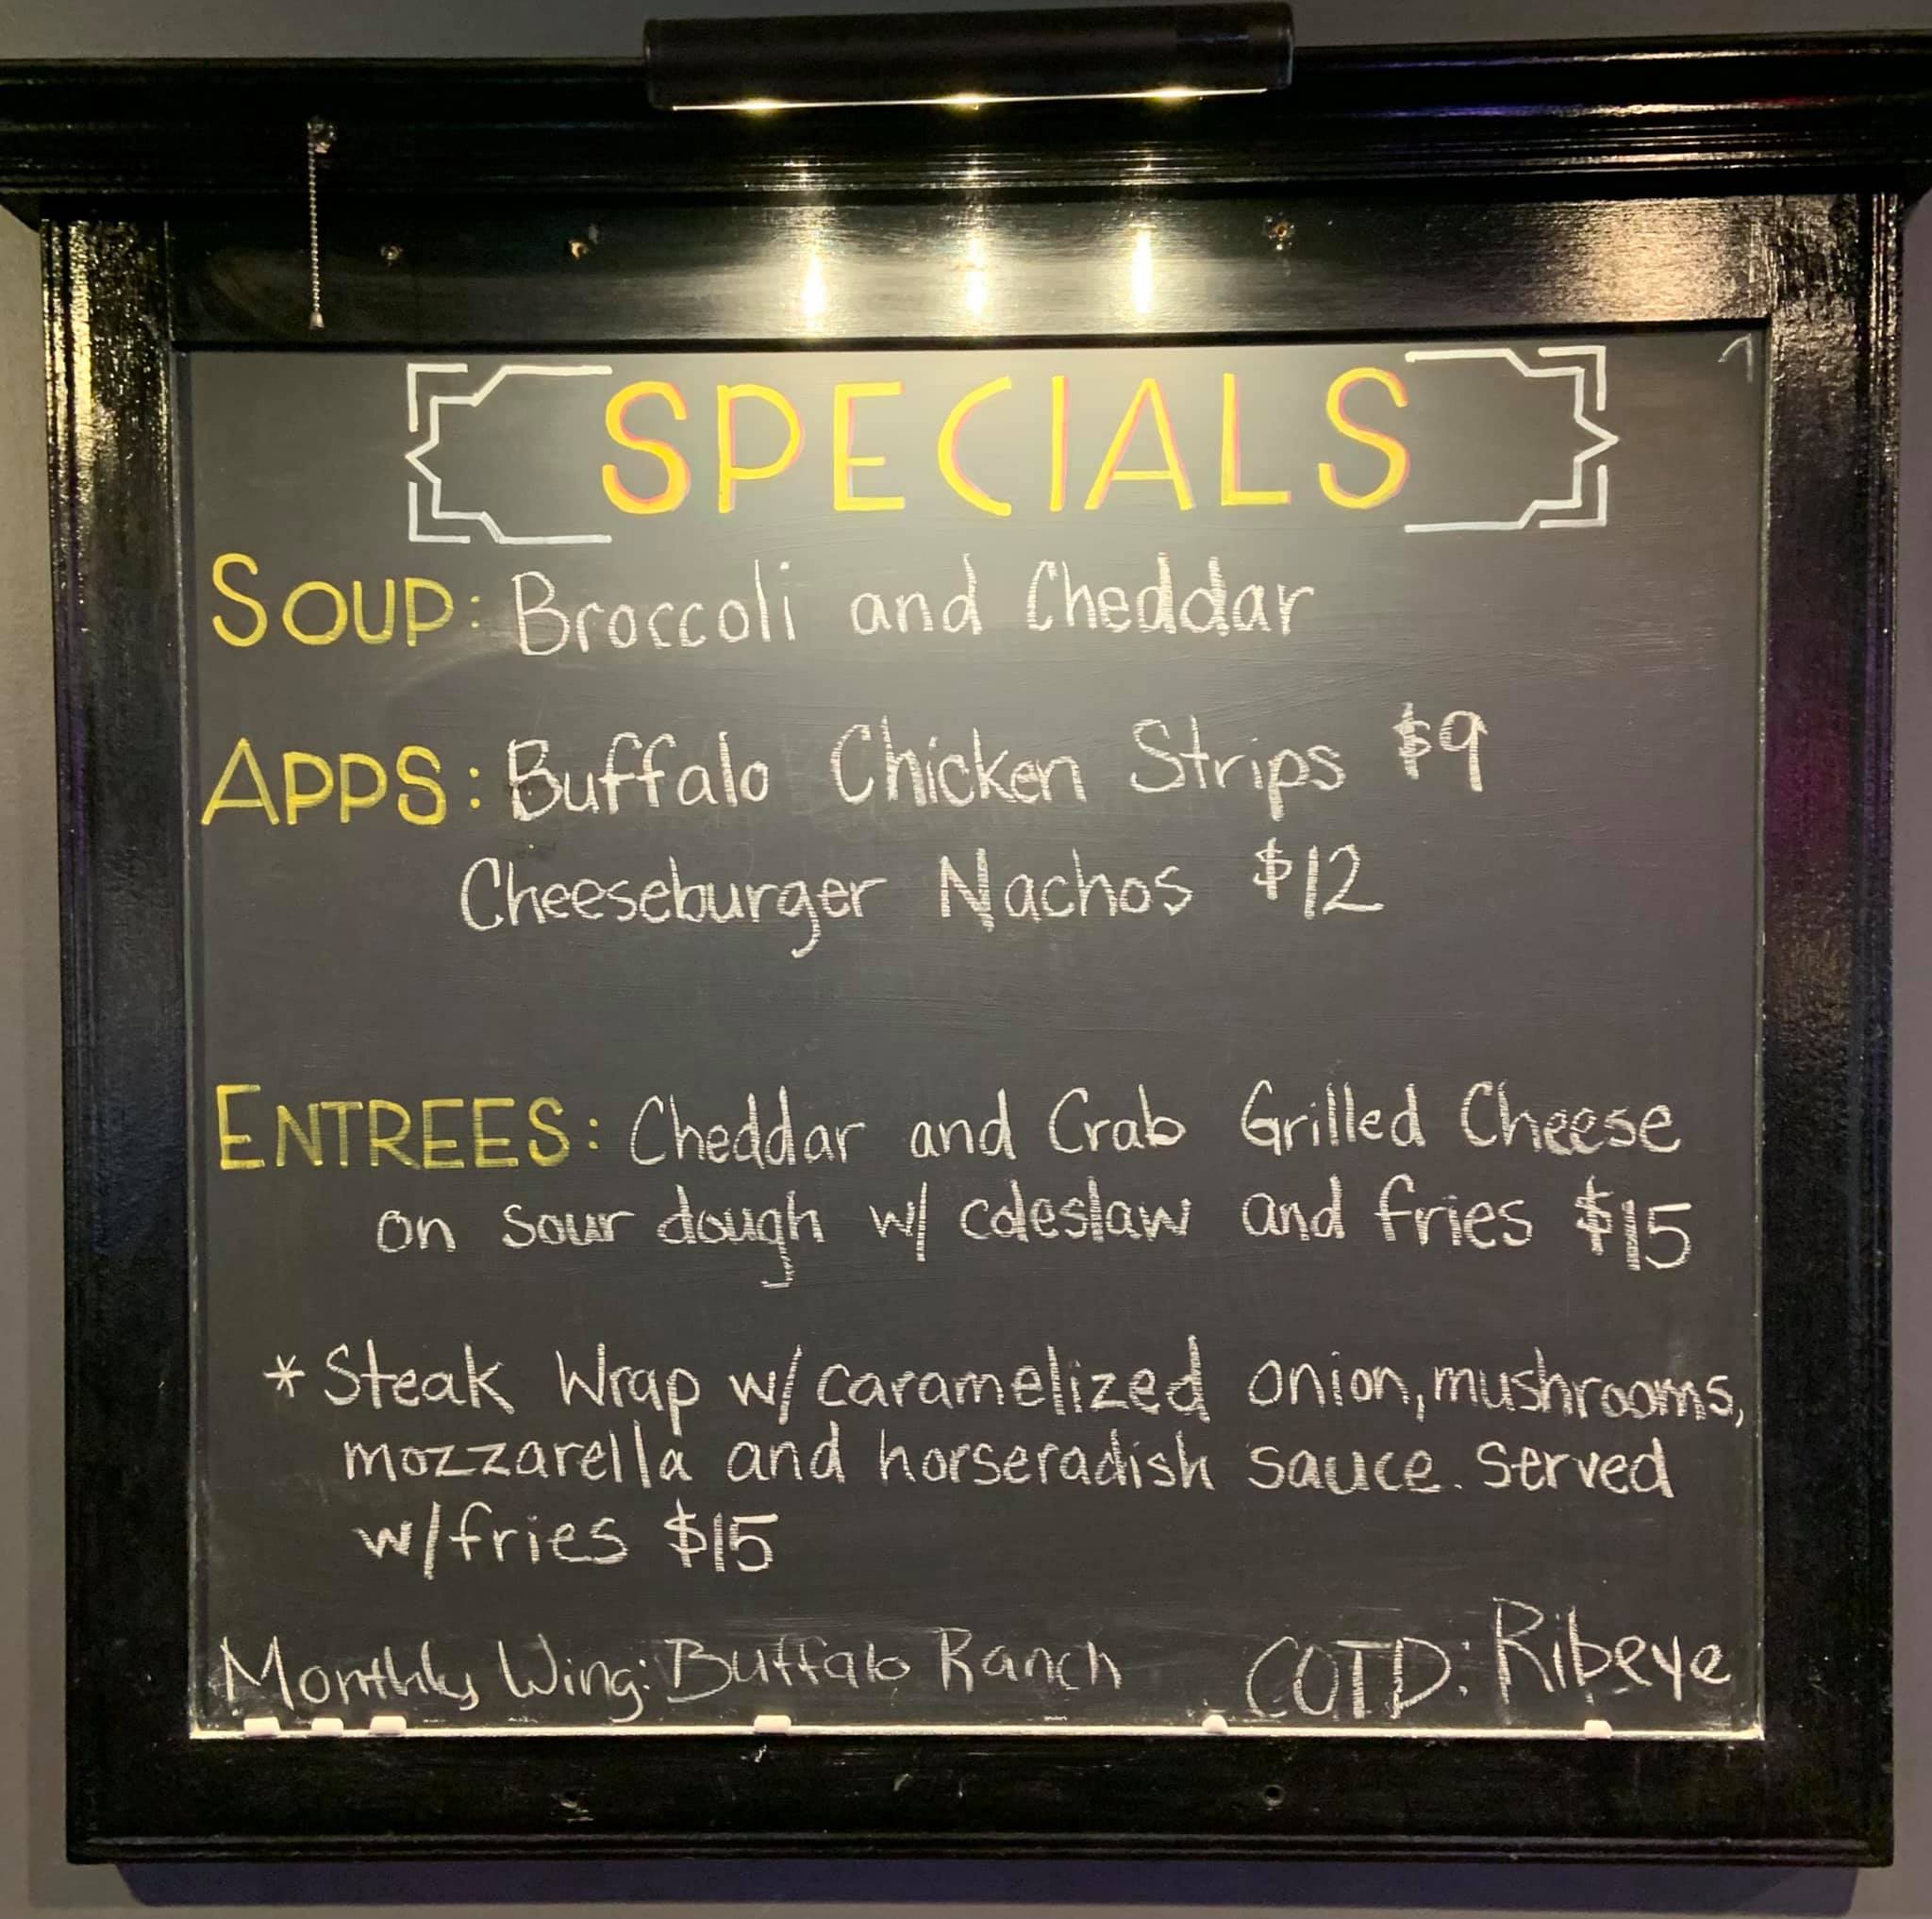 SPECIALS
SOUP: Broccoli and Cheddar
APPS: Buffalo Chicken Strips $9
Cheeseburger Nachos $12
ENTREES: Cheddar and Crab Grilled Cheese
on sour dough w/ coleslaw and fries $15
* Steak Wrap w/ caramelized onion, mushrooms,
mozzarella and horseradish sauce. served
w/fries $15
Monthly Wing: Buffalo Ranch COTD: Ribeye